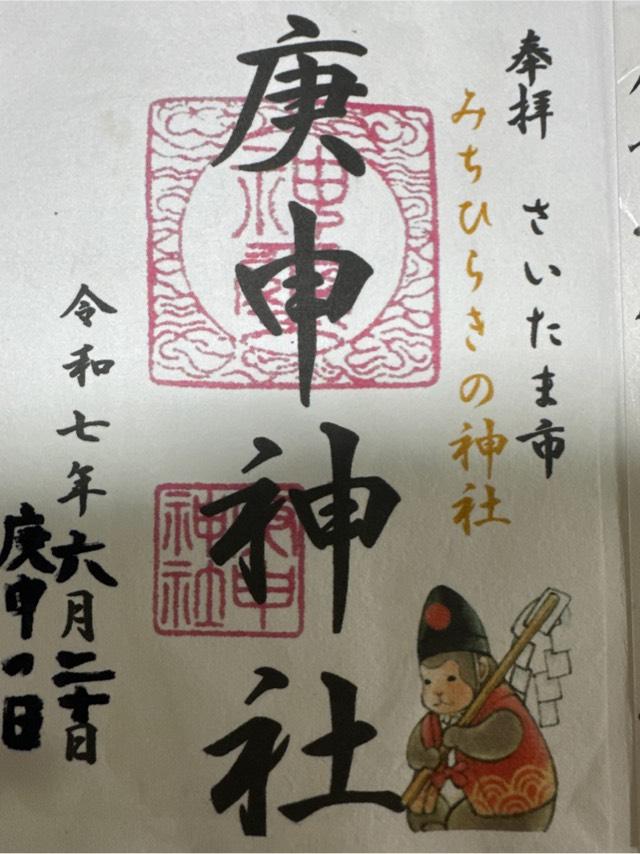 奉拝 さいたま市
みちひらきの神社
庚申神社
庚申
神社
令和七年六月二十日
庚申の日